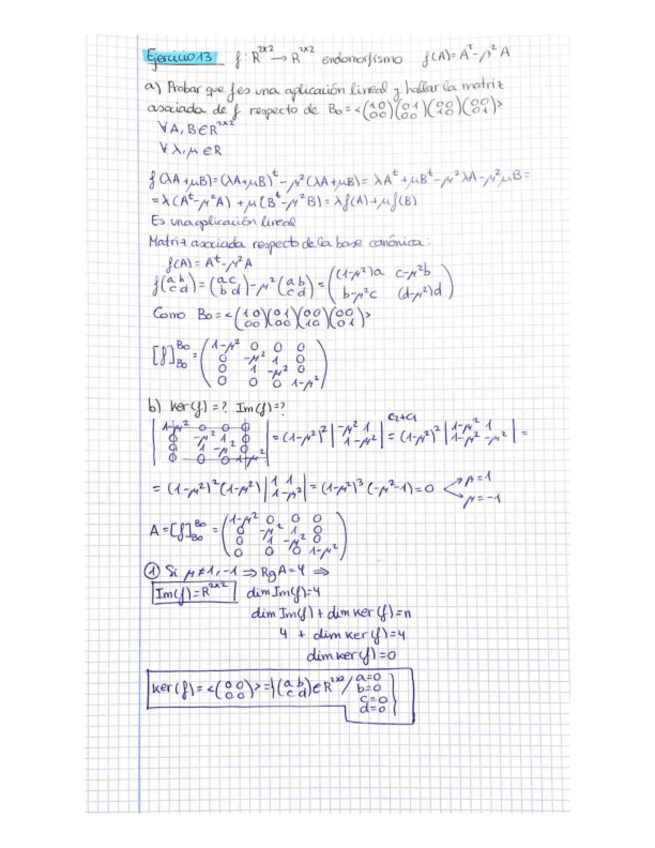 Ejercicio 13 f: R^2x2 → R^2x2 endomorfismo f(A)=A^t-μ²A
a) Probar que f es una aplicación lineal y hallar la matriz
asociada de f respecto de B₀=<(1 0 / 0 0)(0 1 / 0 0)(0 0 / 1 0)(0 0 / 0 1)>
∀A,B∈R^2x2
∀λ,μ∈R
f(λA+μB)=(λA+μB)^t-μ²(λA+μB)=λA^t+μB^t-μ²λA-μ²μB=
=λ(A^t-μ²A)+μ(B^t-μ²B)=λf(A)+μf(B)
Es una aplicación lineal
Matriz asociada respecto de la base canónica:
f(A)=A^t-μ²A
f(a b / c d)=(a c / b d)-μ²(a b / c d)=((1-μ²)a c-μ²b / b-μ²c (1-μ²)d)
Como B₀=<(1 0 / 0 0)(0 1 / 0 0)(0 0 / 1 0)(0 0 / 0 1)>
[f]^B₀_B₀=(1-μ² 0 0 0 / 0 -μ² 1 0 / 0 1 -μ² 0 / 0 0 0 1-μ²)
b) Ker(f)=? Im(f)=?
|1-μ² 0 0 0 / 0 -μ² 1 0 / 0 1 -μ² 0 / 0 0 0 1-μ²|=(1-μ²)²|-μ² 1 / 1 -μ²| C₂+C₁ =(1-μ²)²|1-μ² 1 / 1-μ² -μ²|=
=(1-μ²)²(1-μ²)|1 1 / 1 -μ²|=(1-μ²)³(-μ²-1)=0 μ=1 μ=-1
A=[f]^B₀_B₀=(1-μ² 0 0 0 / 0 -μ² 1 0 / 0 1 -μ² 0 / 0 0 0 1-μ²)
① Si μ≠1,-1 ⇒ Rg A=4 ⇒
Im(f)=R^2x2 dim Im(f)=4
dim Im(f)+dim ker(f)=n
4 + dim ker(f)=4
dim ker(f)=0
Ker(f)=<(0 0 / 0 0)>={(a b / c d)∈R^2x2 / a=0 b=0 c=0 d=0}